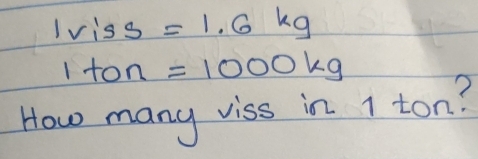 1 viss = 1.6 kg
1 ton = 1000 kg
How many viss in 1 ton?